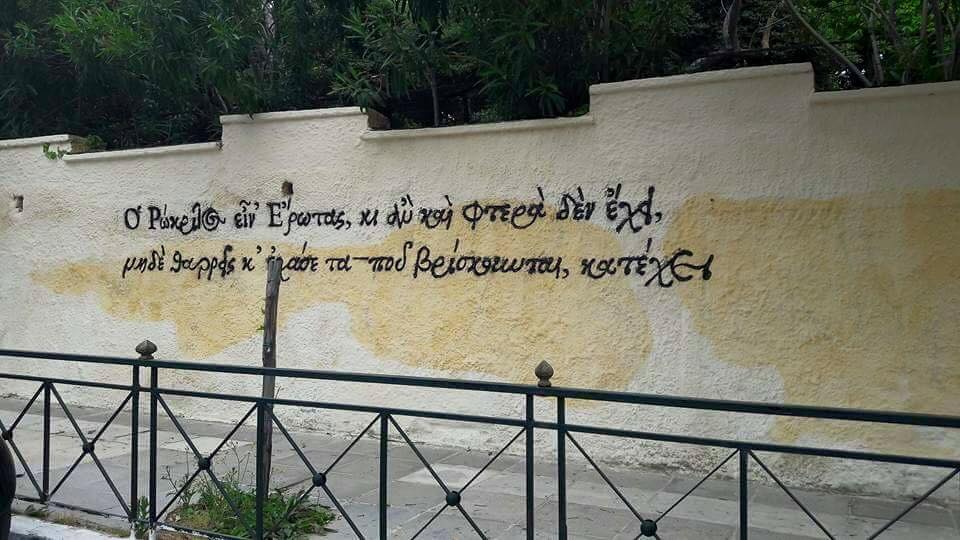 Ὁ Ῥώκριτος εἶν' Ἔρωτας, κι ἂν καὶ φτερὰ δὲν ἔχει,
μηδὲ θαρρεῖς κ' ἐχάσε τα ποῦ βρίσκουνται, κατέχει